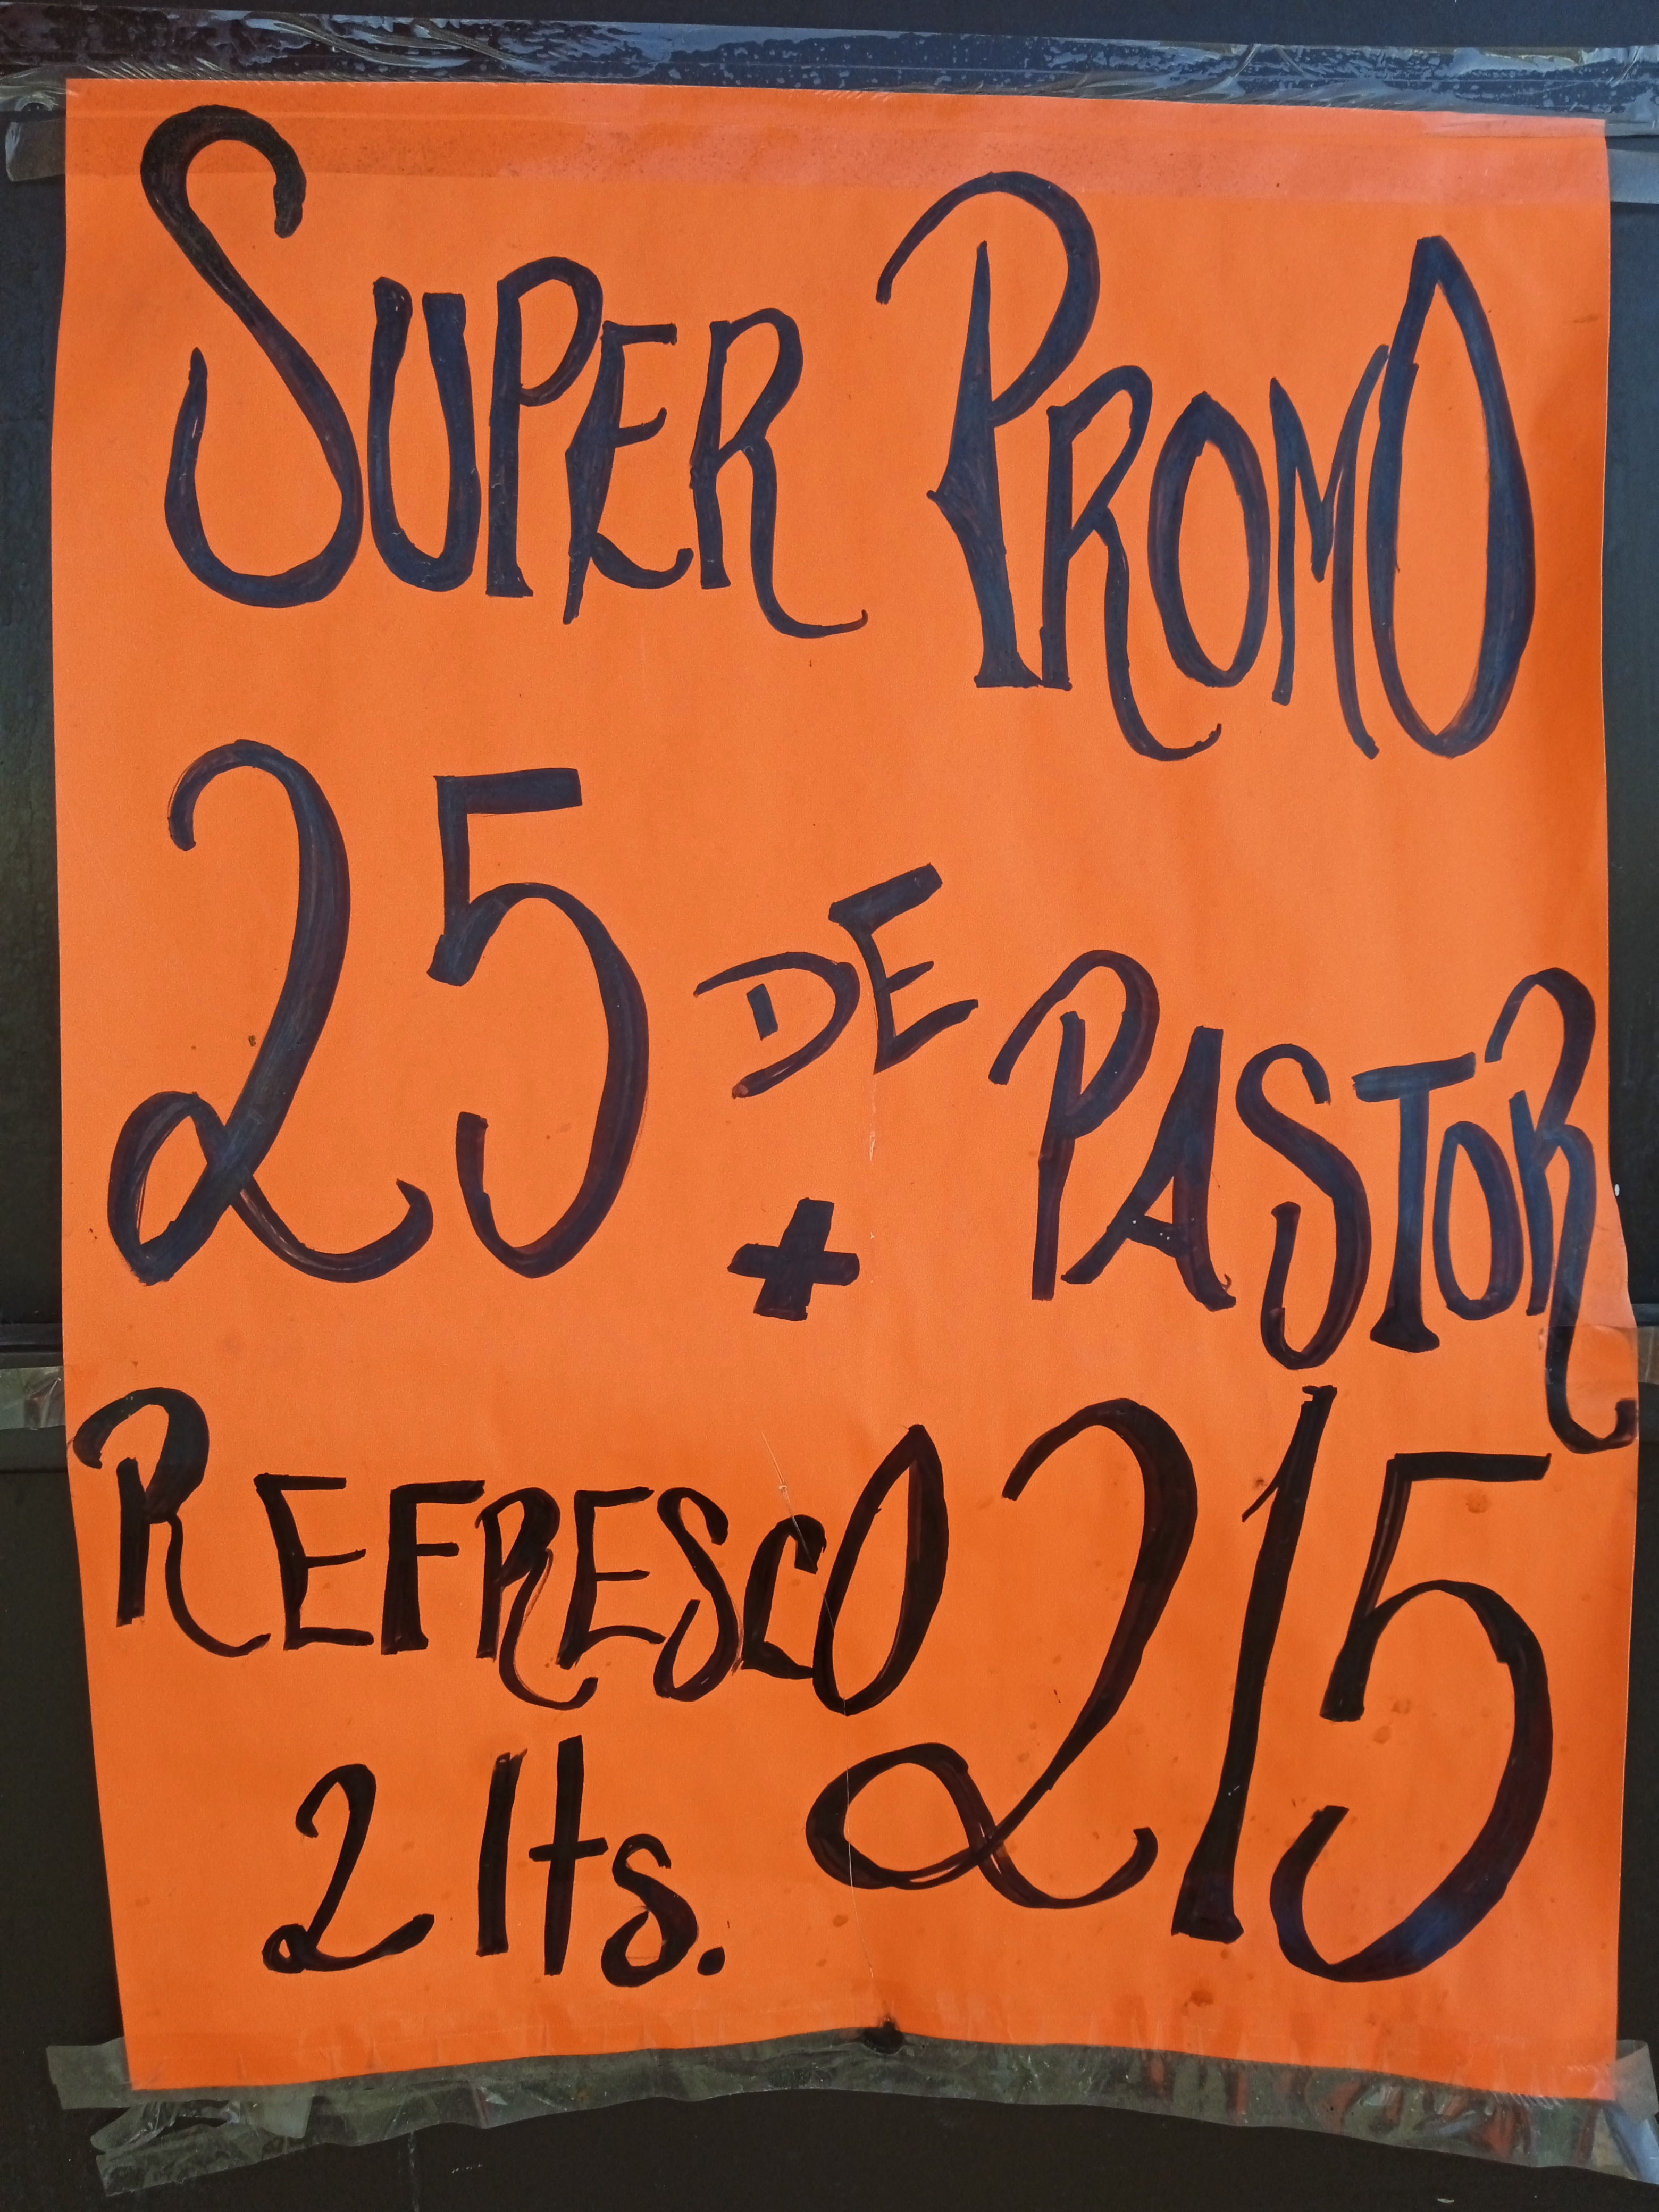 SUPER PROMO
25 DE PASTOR
+
REFRESCO 215
2 lts.